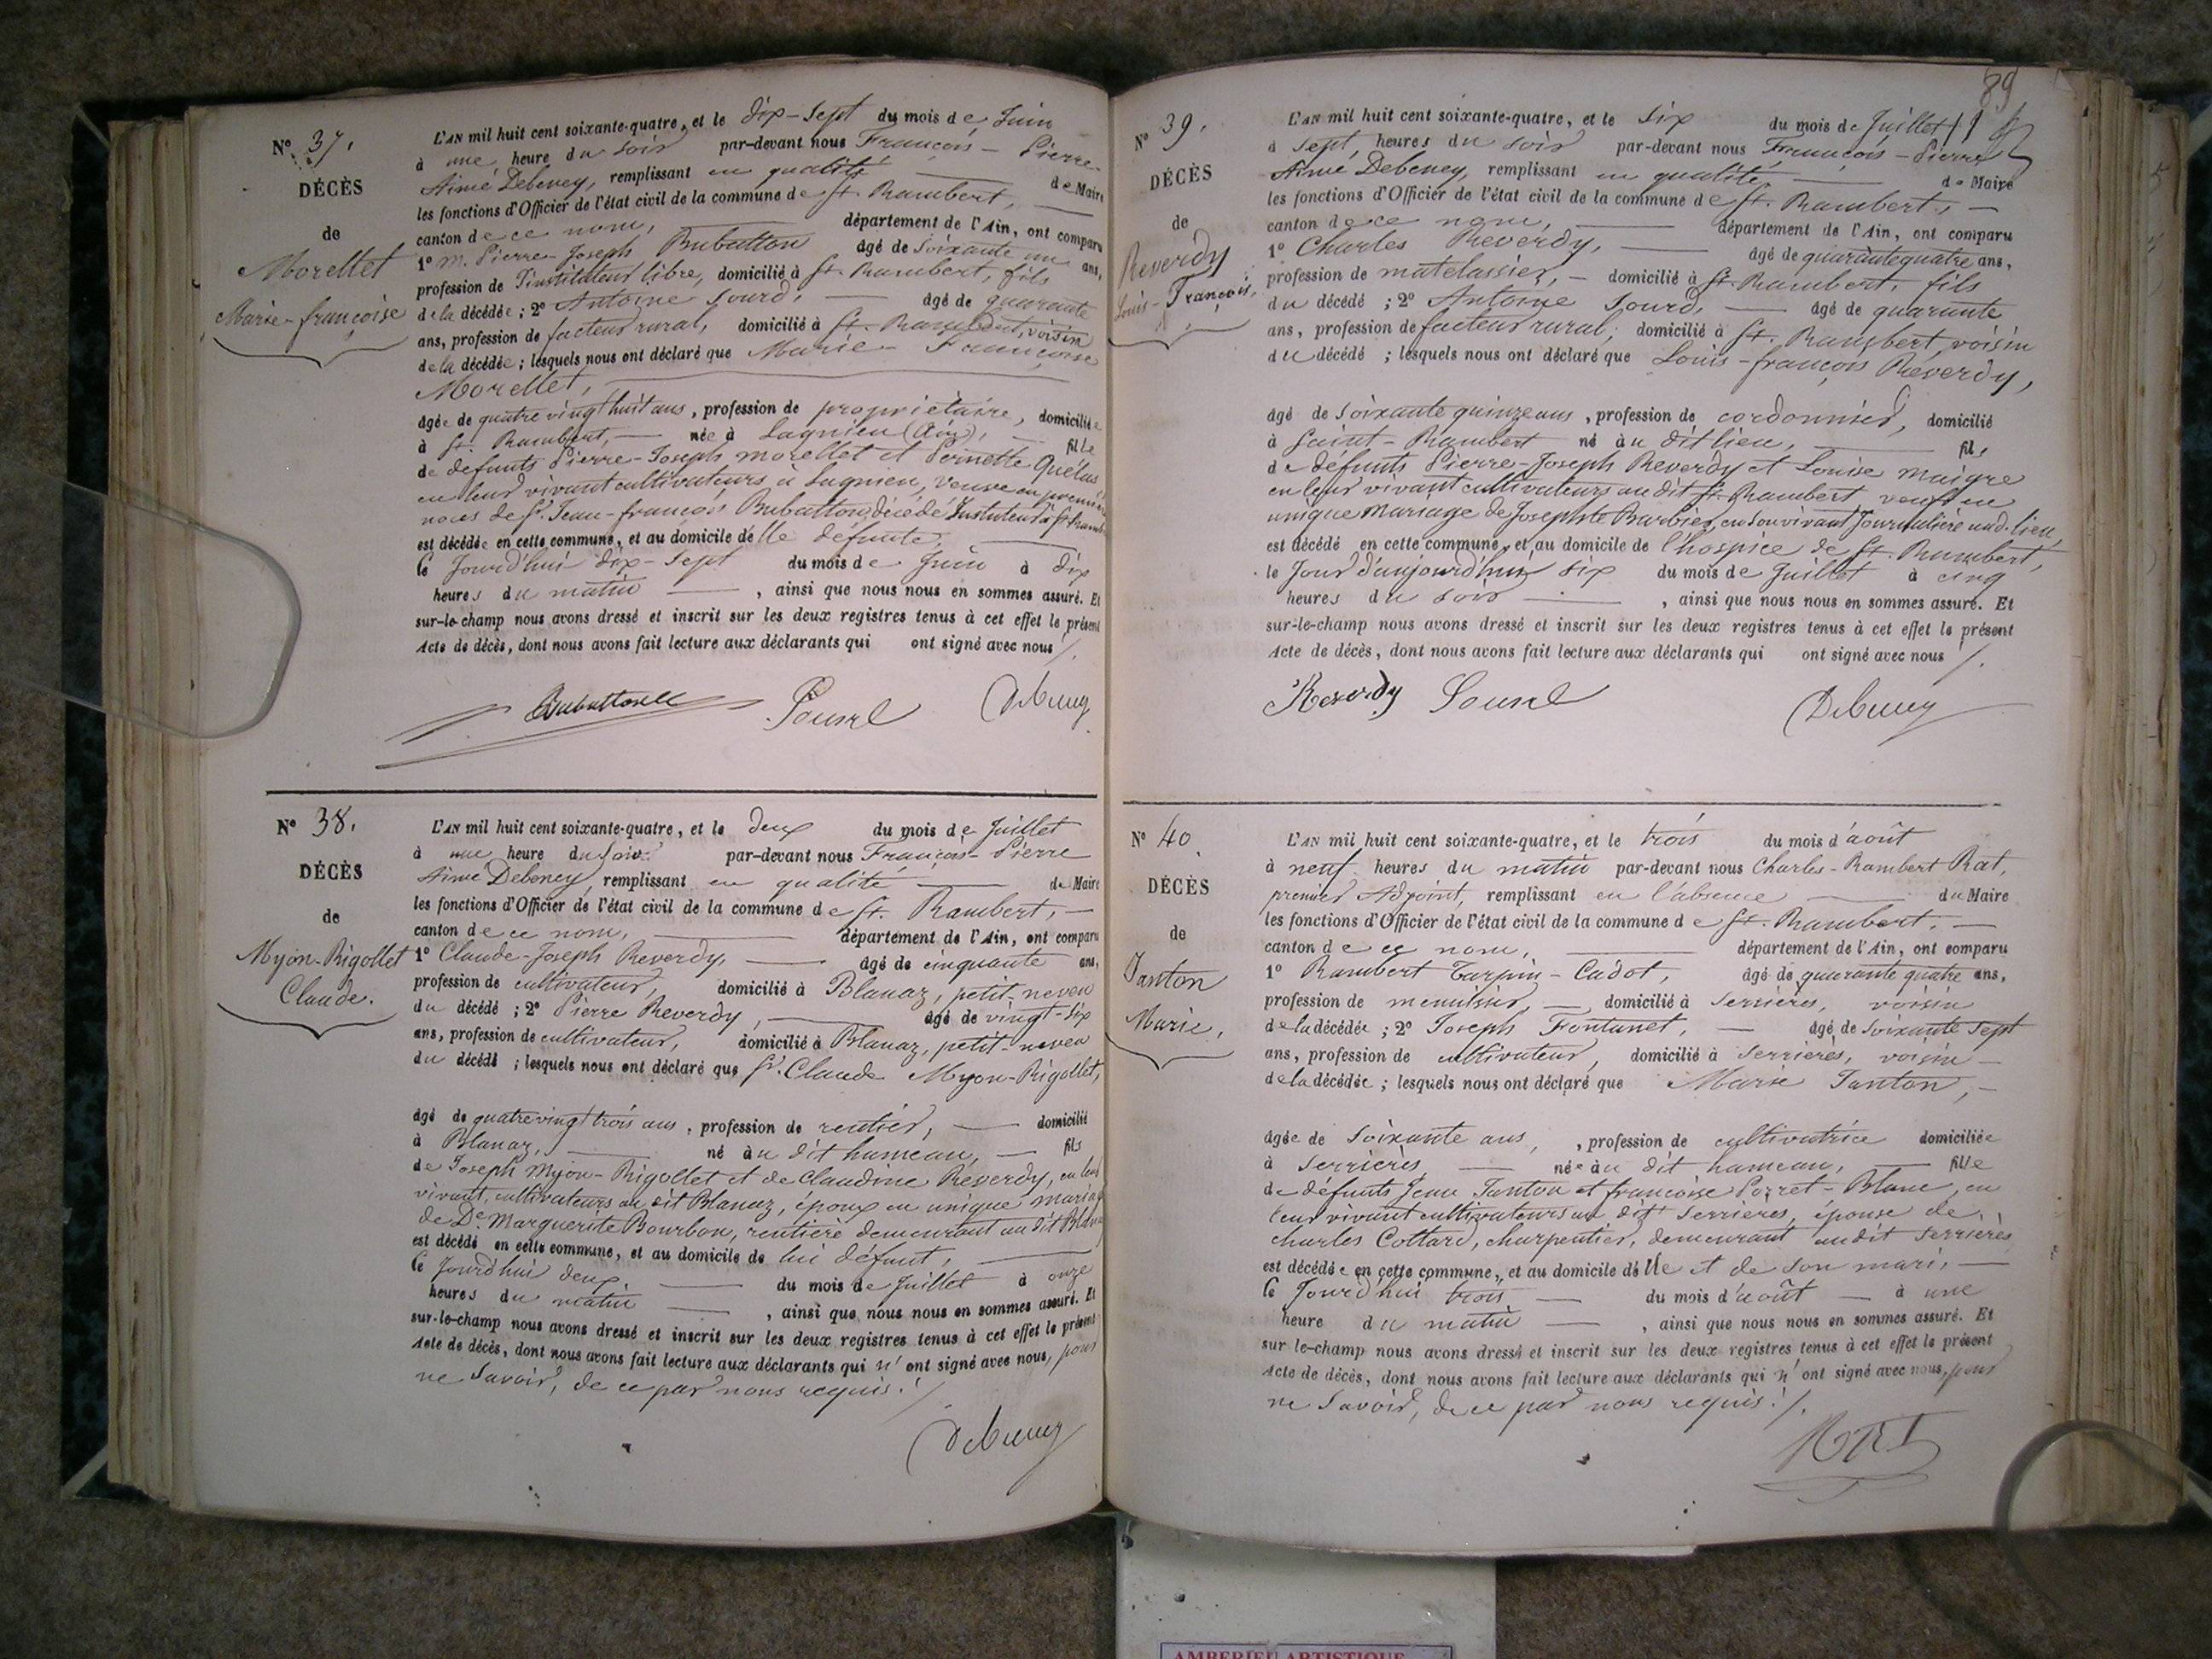 N° 37.
DÉCÈS
de
Morellet
Marie-françoise
L'AN mil huit cent soixante-quatre, et le dix-Sept du mois de Juin
à une heure du Soir par-devant nous François-Pierre-
Aimé Debeney, remplissant en qualité de Maire
les fonctions d'Officier de l'état civil de la commune de St. Rambert,
canton de ce nom, département de l'Ain, ont comparu
1° M. Pierre-Joseph Bubatton âgé de Soixante un ans,
profession de Instituteur libre, domicilié à St. Rambert, fils
de la décédée ; 2° Antoine Sourd, âgé de quarante
ans, profession de facteur rural, domicilié à St. Rambert, voisin
de la décédée ; lesquels nous ont déclaré que Marie-Françoise
Morellet,
âgée de quatre vingt huit ans, profession de propriétaire, domiciliée
à St. Rambert, née à Lagnieu (Ain), fille
de défunts Pierre-Joseph Morellet et Pernette Quélus
en leur vivant cultivateurs à Lagnieu, Veuve en premières
noces de Sr. Jean-françois Bubatton, décédé Instituteur à St. Rambert
est décédée en cette commune, et au domicile de lle défunte,
le Jourd'hui dix-Sept du mois de Juin à dix
heures du matin, ainsi que nous nous en sommes assuré. Et
sur-le-champ nous avons dressé et inscrit sur les deux registres tenus à cet effet le présent
Acte de décès, dont nous avons fait lecture aux déclarants qui ont signé avec nous /.
Sourd Debeney
N° 38.
DÉCÈS
de
Myon-Rigollet
Claude.
L'AN mil huit cent soixante-quatre, et le deux du mois de Juillet
à une heure du Soir par-devant nous François-Pierre
Aimé Debeney, remplissant en qualité de Maire
les fonctions d'Officier de l'état civil de la commune de St. Rambert,
canton de ce nom, département de l'Ain, ont comparu
1° Claude-Joseph Reverdy, âgé de cinquante ans,
profession de cultivateur, domicilié à Blanaz, petit-neveu
du décédé ; 2° Pierre Reverdy, âgé de vingt-Six
ans, profession de cultivateur, domicilié à Blanaz, petit-neveu
du décédé ; lesquels nous ont déclaré que Sr. Claude Myon-Rigollet,
âgé de quatre vingt trois ans, profession de rentier, domicilié
à Blanaz, né au dit hameau, fils
de Joseph Myon-Rigollet et de Claudine Reverdy, en leur
vivant, cultivateurs au dit Blanaz, époux en unique mariage
de De. Marguerite Bourbon, rentière demeurant au dit Blanaz
est décédé en cette commune, et au domicile de lui défunt,
le Jourd'hui deux, du mois de Juillet à onze
heures du matin, ainsi que nous nous en sommes assuré. Et
sur-le-champ nous avons dressé et inscrit sur les deux registres tenus à cet effet le présent
Acte de décès, dont nous avons fait lecture aux déclarants qui n'ont signé avec nous, pour
ne Savoir, de ce par nous requis. /
Debeney
89
N° 39.
DÉCÈS
de
Reverdy
Louis-François,
L'AN mil huit cent soixante-quatre, et le Six du mois de Juillet
à Sept, heures du Soir par-devant nous François-Pierre
Aimé Debeney, remplissant en qualité de Maire
les fonctions d'Officier de l'état civil de la commune de St. Rambert,
canton de ce nom, département de l'Ain, ont comparu
1° Charles Reverdy, âgé de quarante quatre ans,
profession de matelassier, domicilié à St. Rambert, fils
du décédé ; 2° Antoine Sourd, âgé de quarante
ans, profession de facteur rural, domicilié à St. Rambert, voisin
du décédé ; lesquels nous ont déclaré que Louis-françois Reverdy,
âgé de Soixante quinze ans, profession de cordonnier, domicilié
à Saint-Rambert né au dit lieu, fils
de défunts Pierre-Joseph Reverdy et Louise Maigre
en leur vivant cultivateurs au dit St. Rambert veuf en
unique Mariage de Josephte Barbier, en Son vivant Journalière aud. lieu,
est décédé en cette commune, et au domicile de l'hospice de St. Rambert,
le Jour d'aujourd'hui Six du mois de Juillet à cinq
heures du Soir, ainsi que nous nous en sommes assuré. Et
sur-le-champ nous avons dressé et inscrit sur les deux registres tenus à cet effet le présent
Acte de décès, dont nous avons fait lecture aux déclarants qui ont signé avec nous /.
Reverdy Sourd Debeney
N° 40.
DÉCÈS
de
Tanton
Marie,
L'AN mil huit cent soixante-quatre, et le trois du mois d'août
à neuf heures du matin par-devant nous Charles-Rambert Rat,
premier Adjoint, remplissant en l'absence du Maire
les fonctions d'Officier de l'état civil de la commune de St. Rambert,
canton de ce nom, département de l'Ain, ont comparu
1° Rambert Tarpin-Cadot, âgé de quarante quatre ans,
profession de menuisier, domicilié à Serrières, voisin
de la décédée ; 2° Joseph Fontanet, âgé de Soixante Sept
ans, profession de cultivateur, domicilié à Serrières, voisin
de la décédée ; lesquels nous ont déclaré que Marie Tanton,
âgée de Soixante ans, profession de cultivatrice domiciliée
à Serrières, née au dit hameau, fille
de défunts Jean Tanton et françoise Porret-Blanc, en
leur vivant cultivateurs au dit Serrières, épouse de
Charles Cottard, charpentier, demeurant au dit Serrières
est décédée en cette commune, et au domicile d'Elle et de Son mari,
le Jourd'hui trois du mois d'août à une
heure du matin, ainsi que nous nous en sommes assuré. Et
sur-le-champ nous avons dressé et inscrit sur les deux registres tenus à cet effet le présent
Acte de décès, dont nous avons fait lecture aux déclarants qui n'ont signé avec nous, pour
ne Savoir, de ce par nous requis. /.
RAT
AMBERIEU ARTISTIQUE